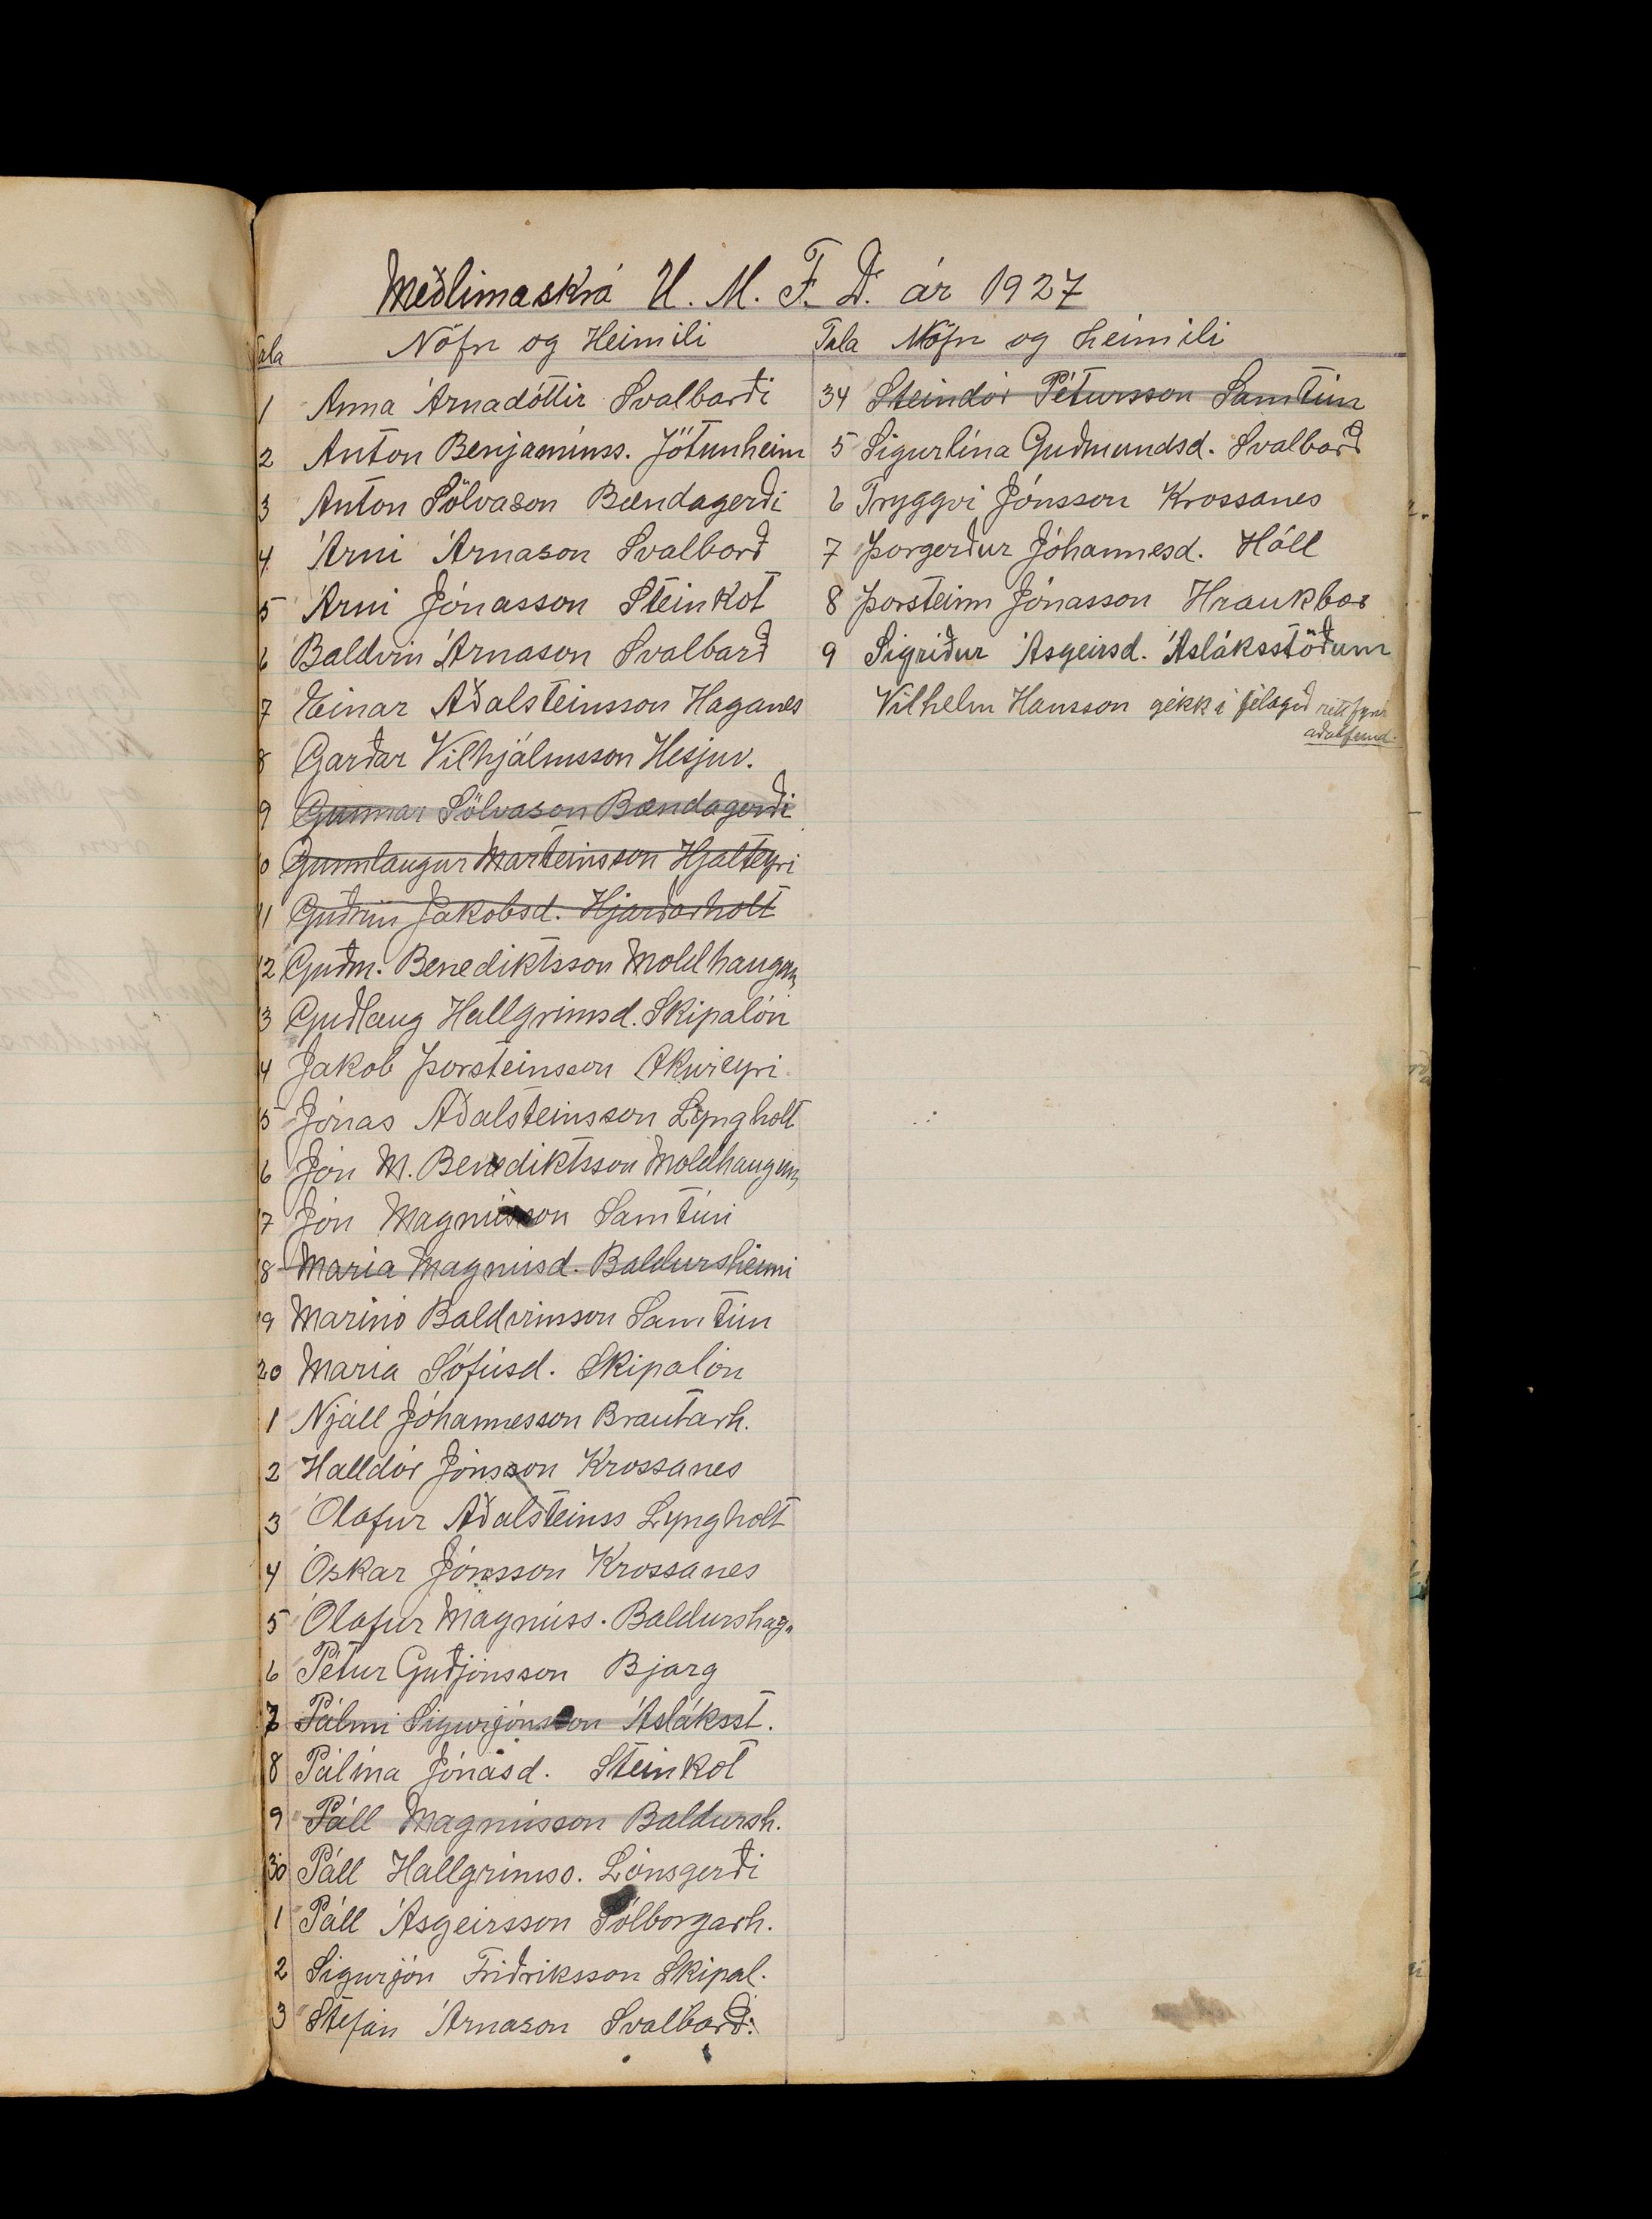 Meðlimaskrá U. M. F. D. ár 1927
Tala Nöfn og Heimili
1 Anna Árnadóttir Svalbarði
2 Anton Benjamínss. Jötunheim
3 Anton Sölvason Bændagerði
4 Árni Árnason Svalbarð
5 Árni Jónasson Steinkot
6 Baldvin Árnason Svalbarð
7 Einar Aðalsteinsson Haganes
8 Garðar Vilhjálmsson Hesjuv.
9 Gunnar Sölvason Bændagerði
10 Gunnlaugur Marteinsson Hjalteyri
11 Guðrún Jakobsd. Hjarðarholt
12 Guðm. Benediktsson Moldhaugum
3 Guðlaug Hallgrímsd. Skipalón
4 Jakob Þorsteinsson Akureyri
5 Jónas Aðalsteinsson Lyngholt
6 Jón M. Benediktsson Moldhaugum
7 Jón Magnússon Samtúni
18 María Magnúsd. Baldursheimi
19 Marinó Baldvinsson Samtún
20 María Sófúsd. Skipalón
1 Njáll Jóhannesson Brautarh.
2 Halldór Jónsson Krossanes
3 Ólafur Aðalsteinss Lyngholt
4 Óskar Jónsson Krossanes
5 Ólafur Magnúss. Baldurshag.
6 Pétur Guðjónsson Bjarg
7 Pálmi Sigurjónsson Ásláksst.
8 Pálína Jónasd. Steinkot
9 Páll Magnússon Baldursh.
30 Páll Hallgrímss. Lónsgerði
1 Páll Ásgeirsson Sólborgarh.
2 Sigurjón Friðriksson Skipal.
3 Stefán Árnason Svalbarð.
Tala Nöfn og heimili
34 Steindór Pétursson Samtún
5 Sigurlína Guðmundsd. Svalbarð
6 Tryggvi Jónsson Krossanes
7 Þorgerður Jóhannesd. Háll
8 Þorsteinn Jónasson Hraukbæ
9 Sigríður Ásgeirsd. Ásláksstöðum
Vilhelm Hansson gekk í félagið rétt fyrir
aðalfund.